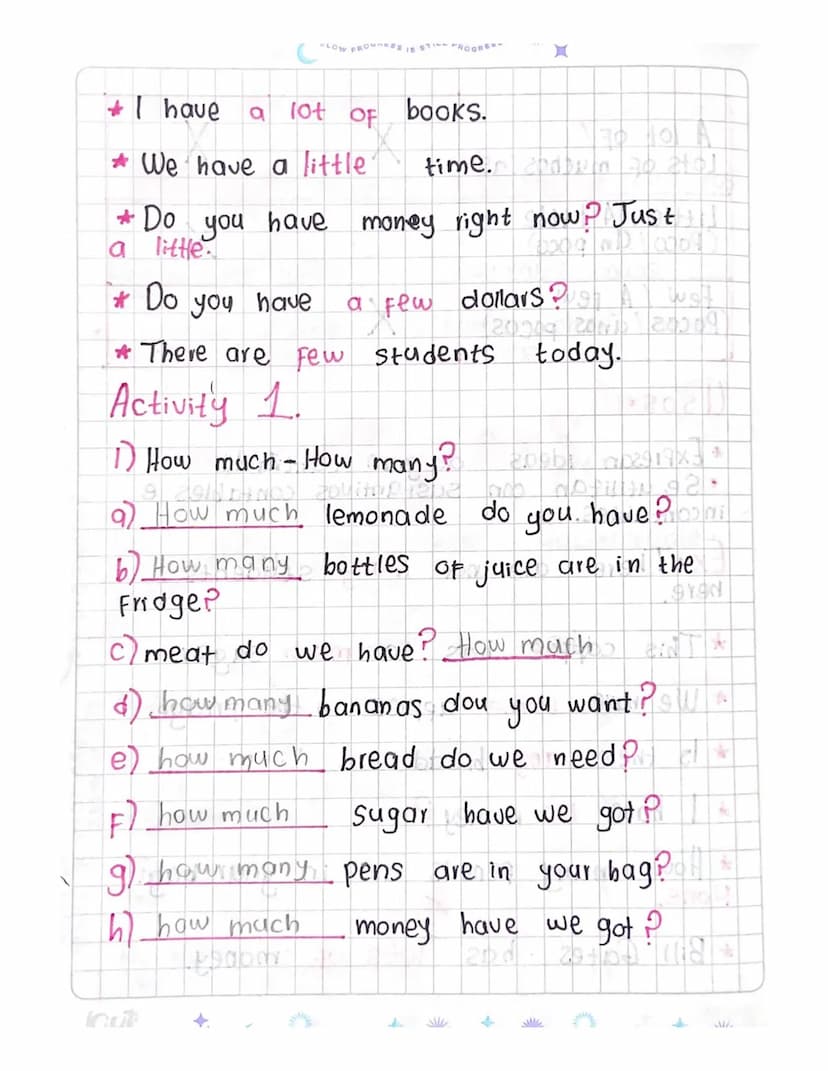 SLOW PROGRESS IS STILL PROGRESS
* I have a lot of books.
* We have a little time.
* Do you have money right now? Just
a little.
* Do you have a few dollars?
* There are few students today.
Activity 1.
1) How much - How many?
a) How much lemonade do you have?
b) How many bottles of juice are in the
Fridge?
c) meat do we have? How much
d) how many bananas dou you want?
e) how much bread do we need?
F) how much sugar have we got?
g) how many pens are in your bag?
h) how much money have we got?